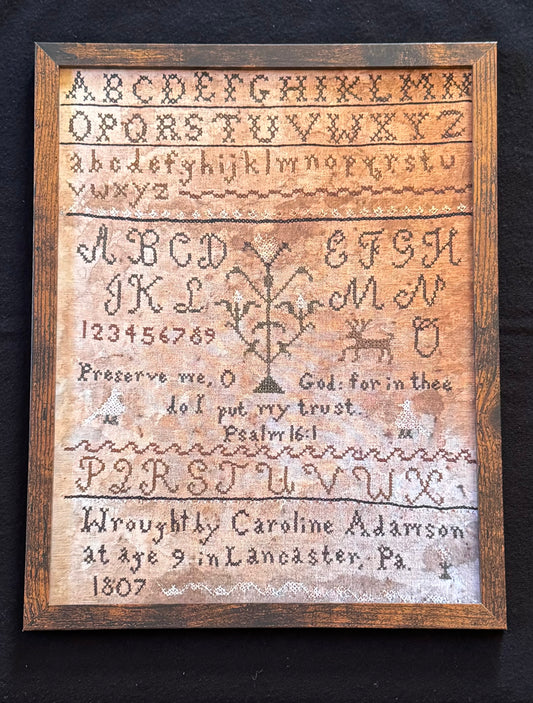 ABCDEFGHIKLMN
OPQRSTUVWXYZ
abcdefghijklmnopqrstu
vwxyz
ABCD EFGH
IKL MN
123456789 O
Preserve me, O God: for in thee
do I put my trust.
Psalm 16:1
PQRSTUVWX
Wrought by Caroline Adamson
at age 9 in Lancaster, Pa.
1807